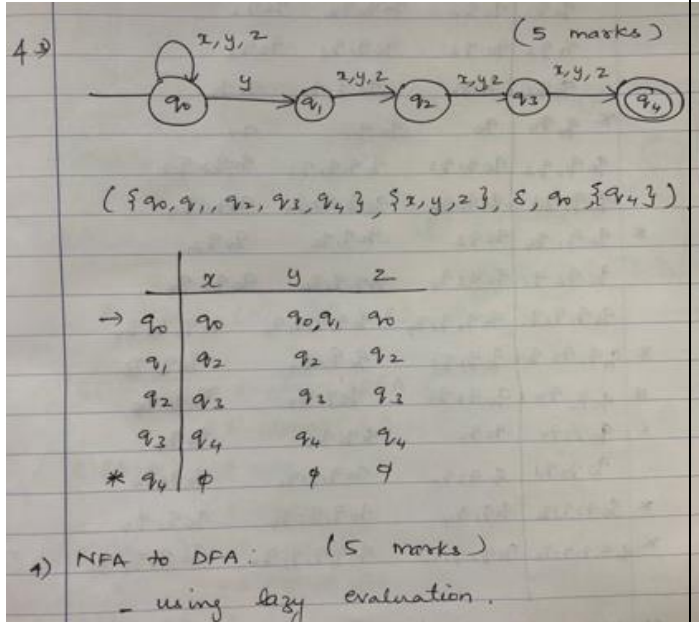 (5 marks)
4→
x, y, z
y x,y,z x,y,z x,y, z
q0 q1 q2 q3 q4
({q0, q1, q2, q3, q4}, {x, y, z}, δ, q0, {q4})
x y z
→ q0 q0 q0,q1 q0
q1 q2 q2 q2
q2 q3 q3 q3
q3 q4 q4 q4
* q4 ϕ ϕ ϕ
4) NFA to DFA: (5 marks)
- using lazy evaluation.